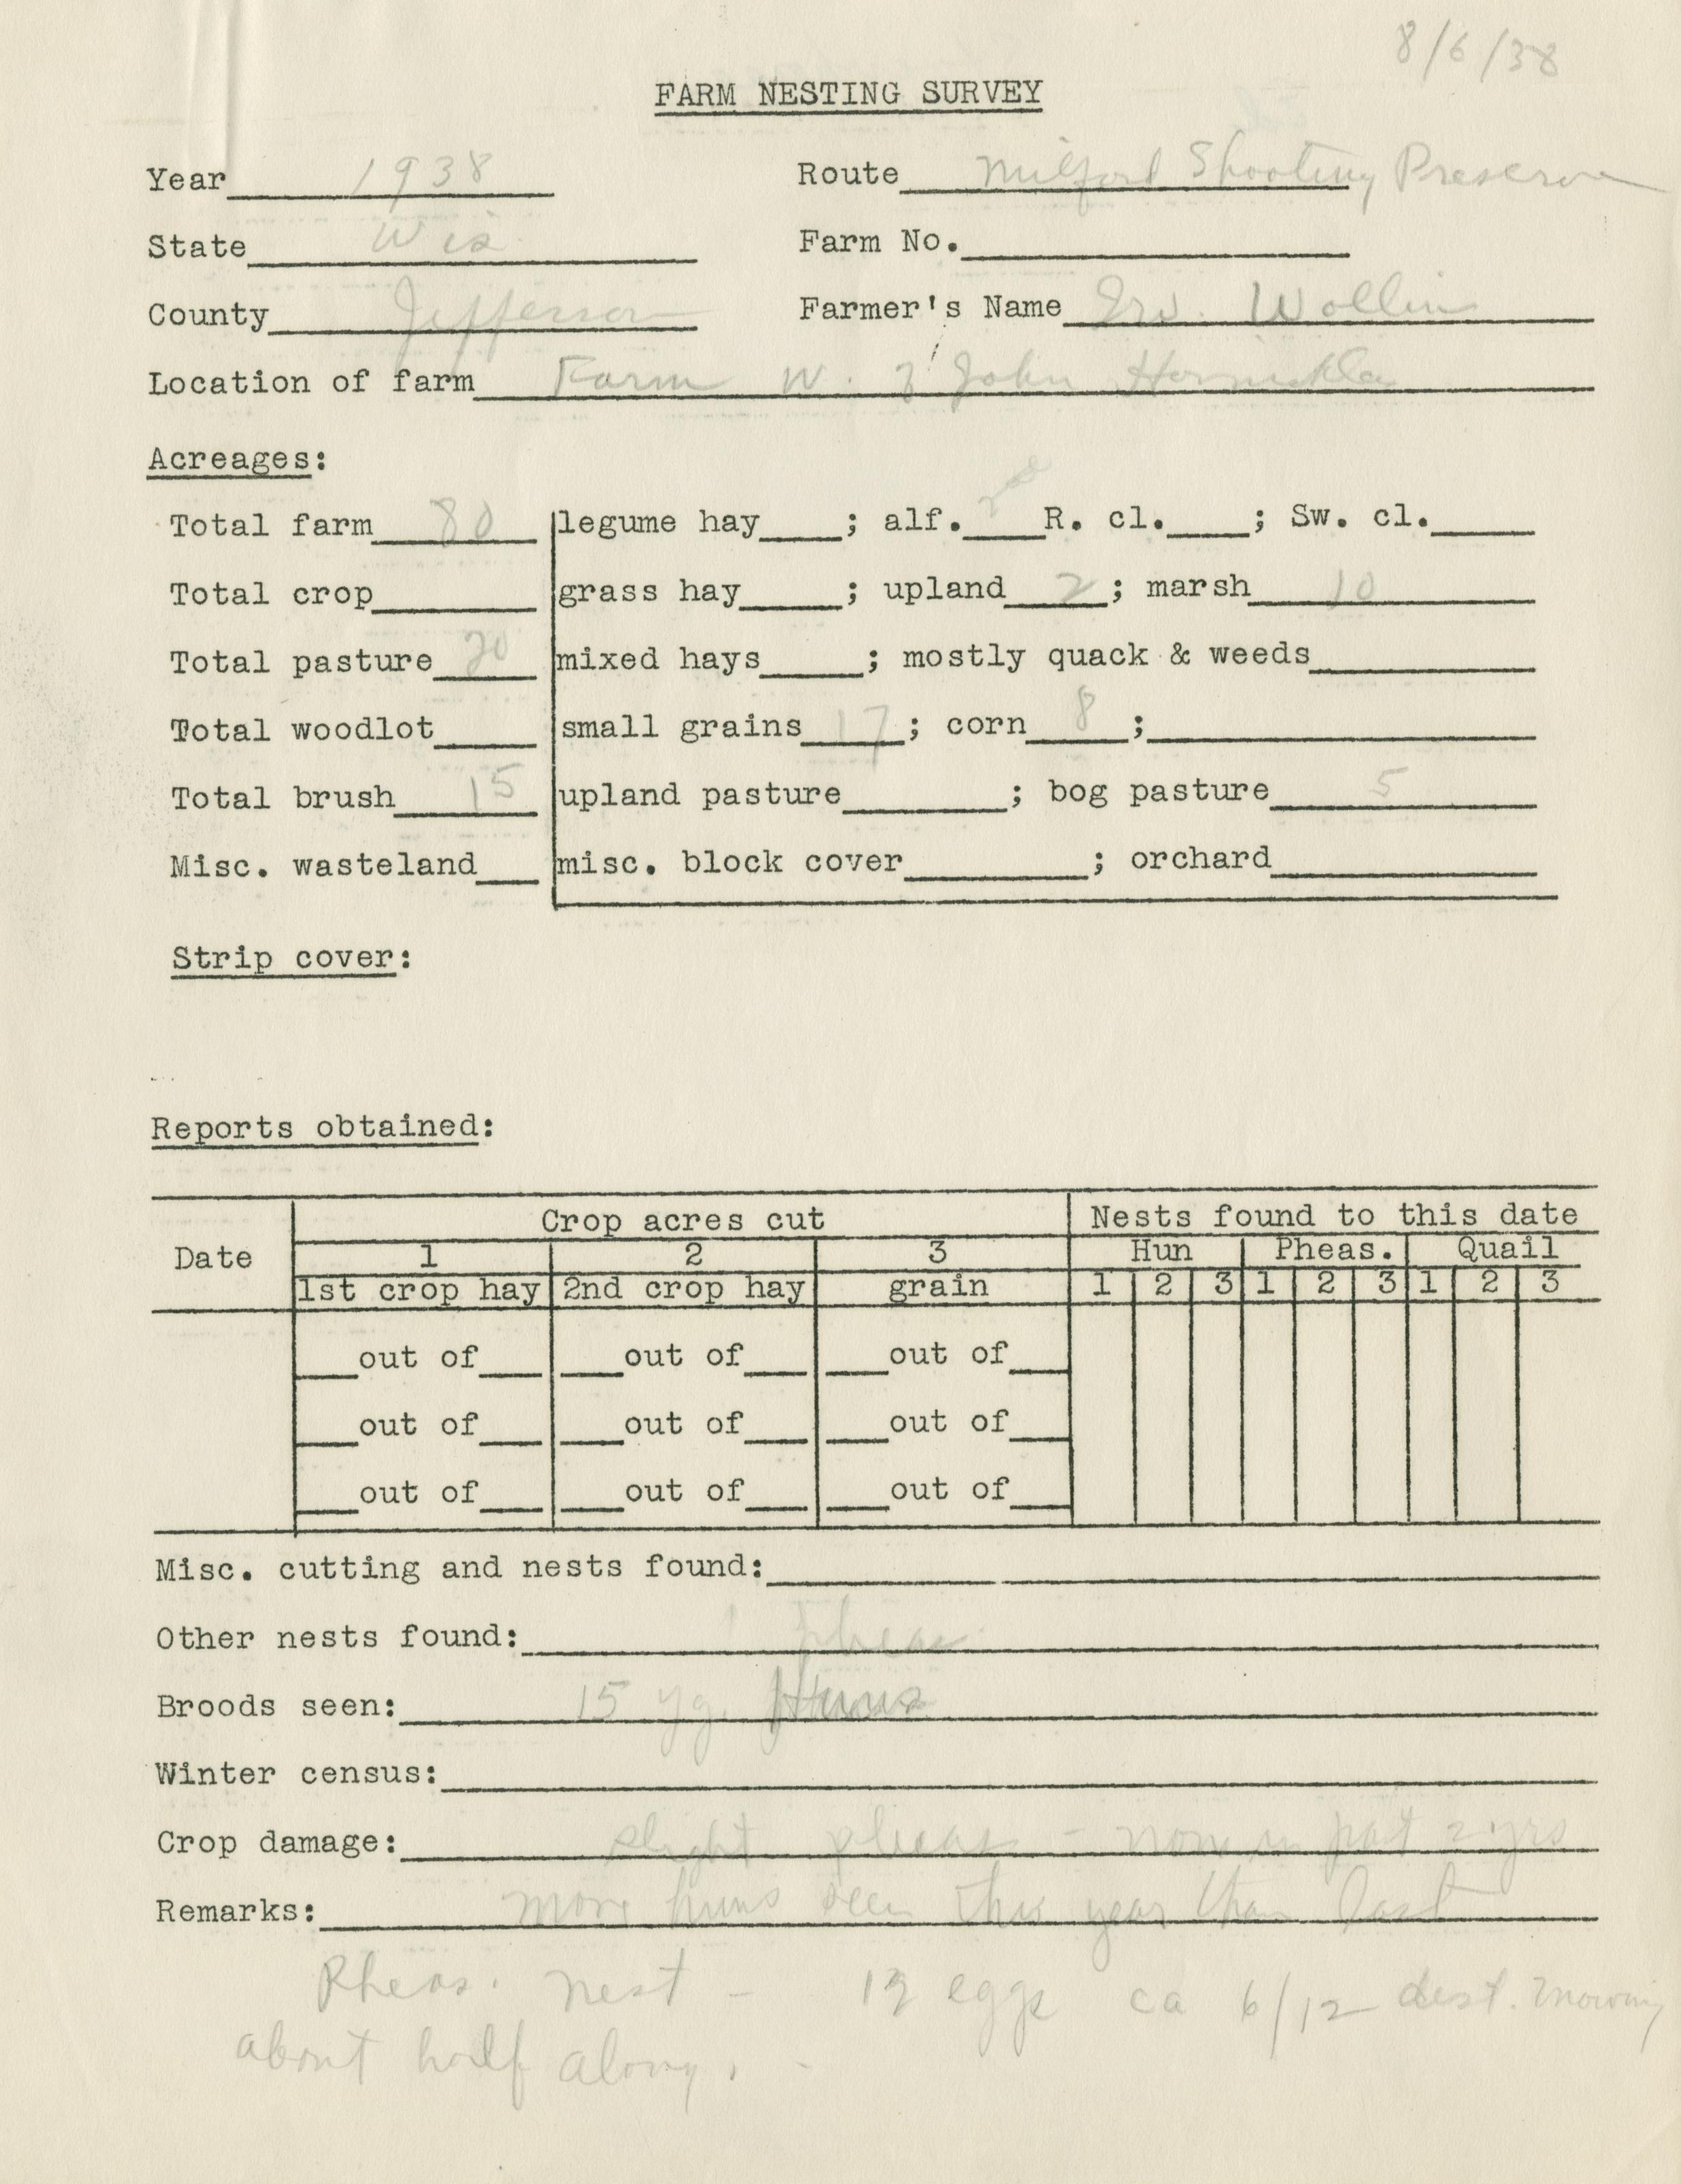 8/6/38
FARM NESTING SURVEY
Year 1938 Route Milford Shooting Preserve
State Wis. Farm No.
County Jefferson Farmer's Name Erv. Wollin
Location of farm Farm W. of John
Acreages:
Total farm 80 legume hay ; alf. R. cl. ; Sw. cl.
Total crop grass hay ; upland 2; marsh 10
Total pasture 20 mixed hays ; mostly quack & weeds
Total woodlot small grains 17; corn 8;
Total brush 15 upland pasture ; bog pasture 5
Misc. wasteland misc. block cover ; orchard
Strip cover:
Reports obtained:
Crop acres cut Nests found to this date
Date 1 2 3 Hun Pheas. Quail
1st crop hay 2nd crop hay grain 1 2 3 1 2 3 1 2 3
out of out of out of
out of out of out of
out of out of out of
Misc. cutting and nests found:
Other nests found: 1 pheas.
Broods seen: 15 yg. Huns
Winter census:
Crop damage: slight pheas - none in past 2 yrs
Remarks: more huns seen this year than last
Pheas. nest - eggs ca 6/12 dest. mowing
about half along.